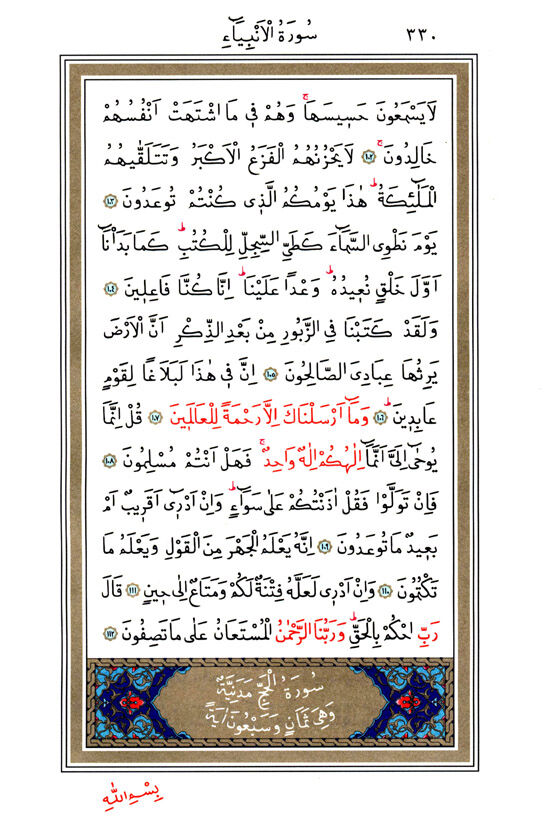 ٣٣٠ سُورَةُ الْاَنْبِيَاءِ
لَا يَسْمَعُونَ حَسٖيسَهَاۚ وَهُمْ فٖي مَا اشْتَهَتْ اَنْفُسُهُمْ
خَالِدُونَۚ ﴿١٠٢﴾ لَا يَحْزُنُهُمُ الْفَزَعُ الْاَكْبَرُ وَتَتَلَقّٰيهُمُ
الْمَلٰٓئِكَةُۜ هٰذَا يَوْمُكُمُ الَّذٖي كُنْتُمْ تُوعَدُونَ ﴿١٠٣﴾
يَوْمَ نَطْوِي السَّمَٓاءَ كَطَيِّ السِّجِلِّ لِلْكُتُبِۜ كَمَا بَدَأْنَٓا
اَوَّلَ خَلْقٍ نُعٖيدُهُۜ وَعْدًا عَلَيْنَاۜ اِنَّا كُنَّا فَاعِلٖينَ ﴿١٠٤﴾
وَلَقَدْ كَتَبْنَا فِي الزَّبُورِ مِنْ بَعْدِ الذِّكْرِ اَنَّ الْاَرْضَ
يَرِثُهَا عِبَادِيَ الصَّالِحُونَ ﴿١٠٥﴾ اِنَّ فٖي هٰذَا لَبَلَاغًا لِقَوْمٍ
عَابِدٖينَۜ ﴿١٠٦﴾ وَمَٓا اَرْسَلْنَاكَ اِلَّا رَحْمَةً لِلْعَالَمٖينَ ﴿١٠٧﴾ قُلْ اِنَّمَا
يُوحٰٓى اِلَيَّ اَنَّمَٓا اِلٰهُكُمْ اِلٰهٌ وَاحِدٌۚ فَهَلْ اَنْتُمْ مُسْلِمُونَ ﴿١٠٨﴾
فَاِنْ تَوَلَّوْا فَقُلْ اٰذَنْتُكُمْ عَلٰى سَوَٓاءٍۜ وَاِنْ اَدْرٖٓي اَقَرٖيبٌ اَمْ
بَعٖيدٌ مَا تُوعَدُونَ ﴿١٠٩﴾ اِنَّهُ يَعْلَمُ الْجَهْرَ مِنَ الْقَوْلِ وَيَعْلَمُ مَا
تَكْتُمُونَ ﴿١١٠﴾ وَاِنْ اَدْرٖي لَعَلَّهُ فِتْنَةٌ لَكُمْ وَمَتَاعٌ اِلٰى حٖينٍ ﴿١١١﴾ قَالَ
رَبِّ احْكُمْ بِالْحَقِّۜ وَرَبُّنَا الرَّحْمٰنُ الْمُسْتَعَانُ عَلٰى مَا تَصِفُونَ ﴿١١٢﴾
سُورَةُ الْحَجِّ مَدَنِيَّةٌ
وَهِيَ ثَمَانٍ وَسَبْعُونَ اٰيَةً
بِسْمِ اللّٰهِ